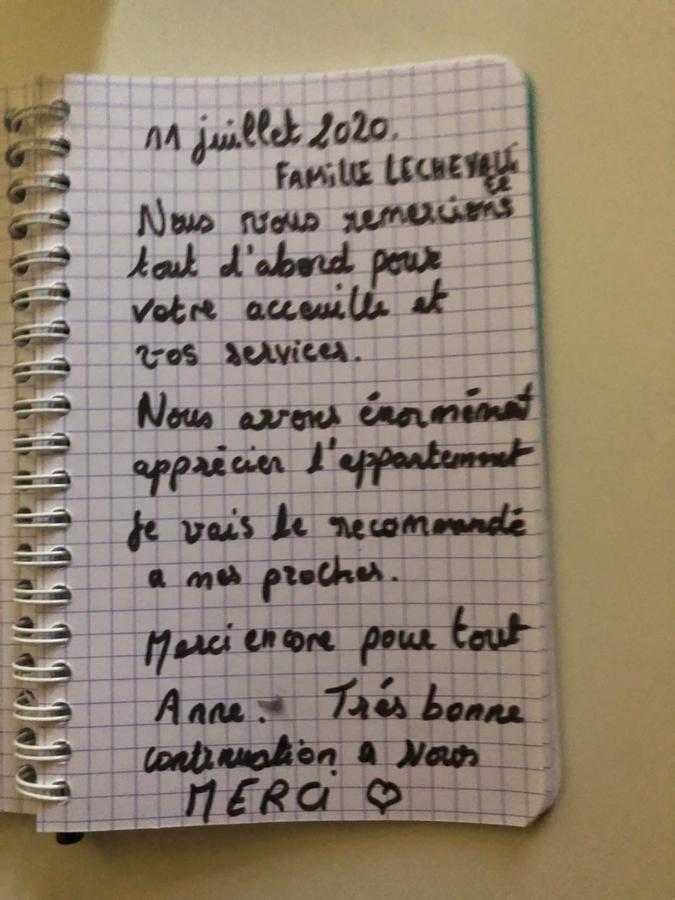 11 juillet 2020.
FAMILLE LECHEVALLIER
Nous vous remercions
tout d'abord pour
votre acceuille et
vos services.
Nous avons énormémat
apprécier l'appartemmet
Je vais le recommandé
a mes proches.
Merci encore pour tout
Anne. Trés bonne
continuation a vous
MERCi ♡